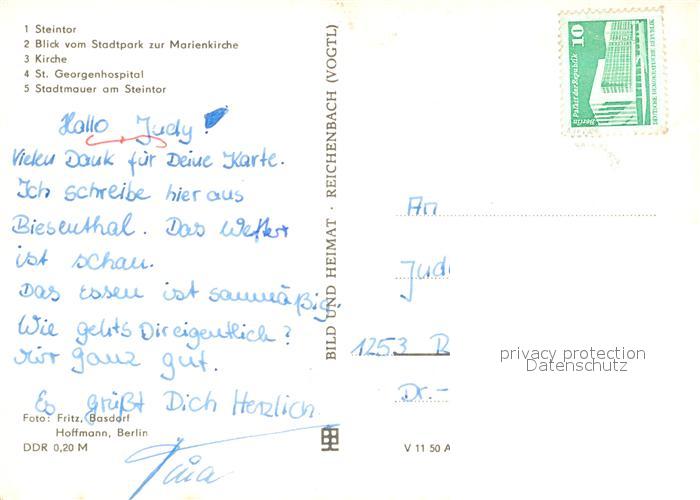 1 Steintor
2 Blick vom Stadtpark zur Marienkirche
3 Kirche
4 St. Georgenhospital
5 Stadtmauer am Steintor
Hallo Judy!
Vielen Dank für Deine Karte.
Ich schreibe hier aus
Biesenthal. Das Wetter
ist schau.
Das Essen ist saumäßig.
Wie gehts Dir eigentlich?
Mir ganz gut.
Es grüßt Dich Herzlich
Tina
Foto: Fritz, Basdorf
Hoffmann, Berlin
DDR 0,20 M
BILD UND HEIMAT · REICHENBACH (VOGTL)
V 11 50 A
10
Palast der Republik
Berlin
DEUTSCHE DEMOKRATISCHE REPUBLIK
An
Jud
1253 B
Dr.-
privacy protection
Datenschutz